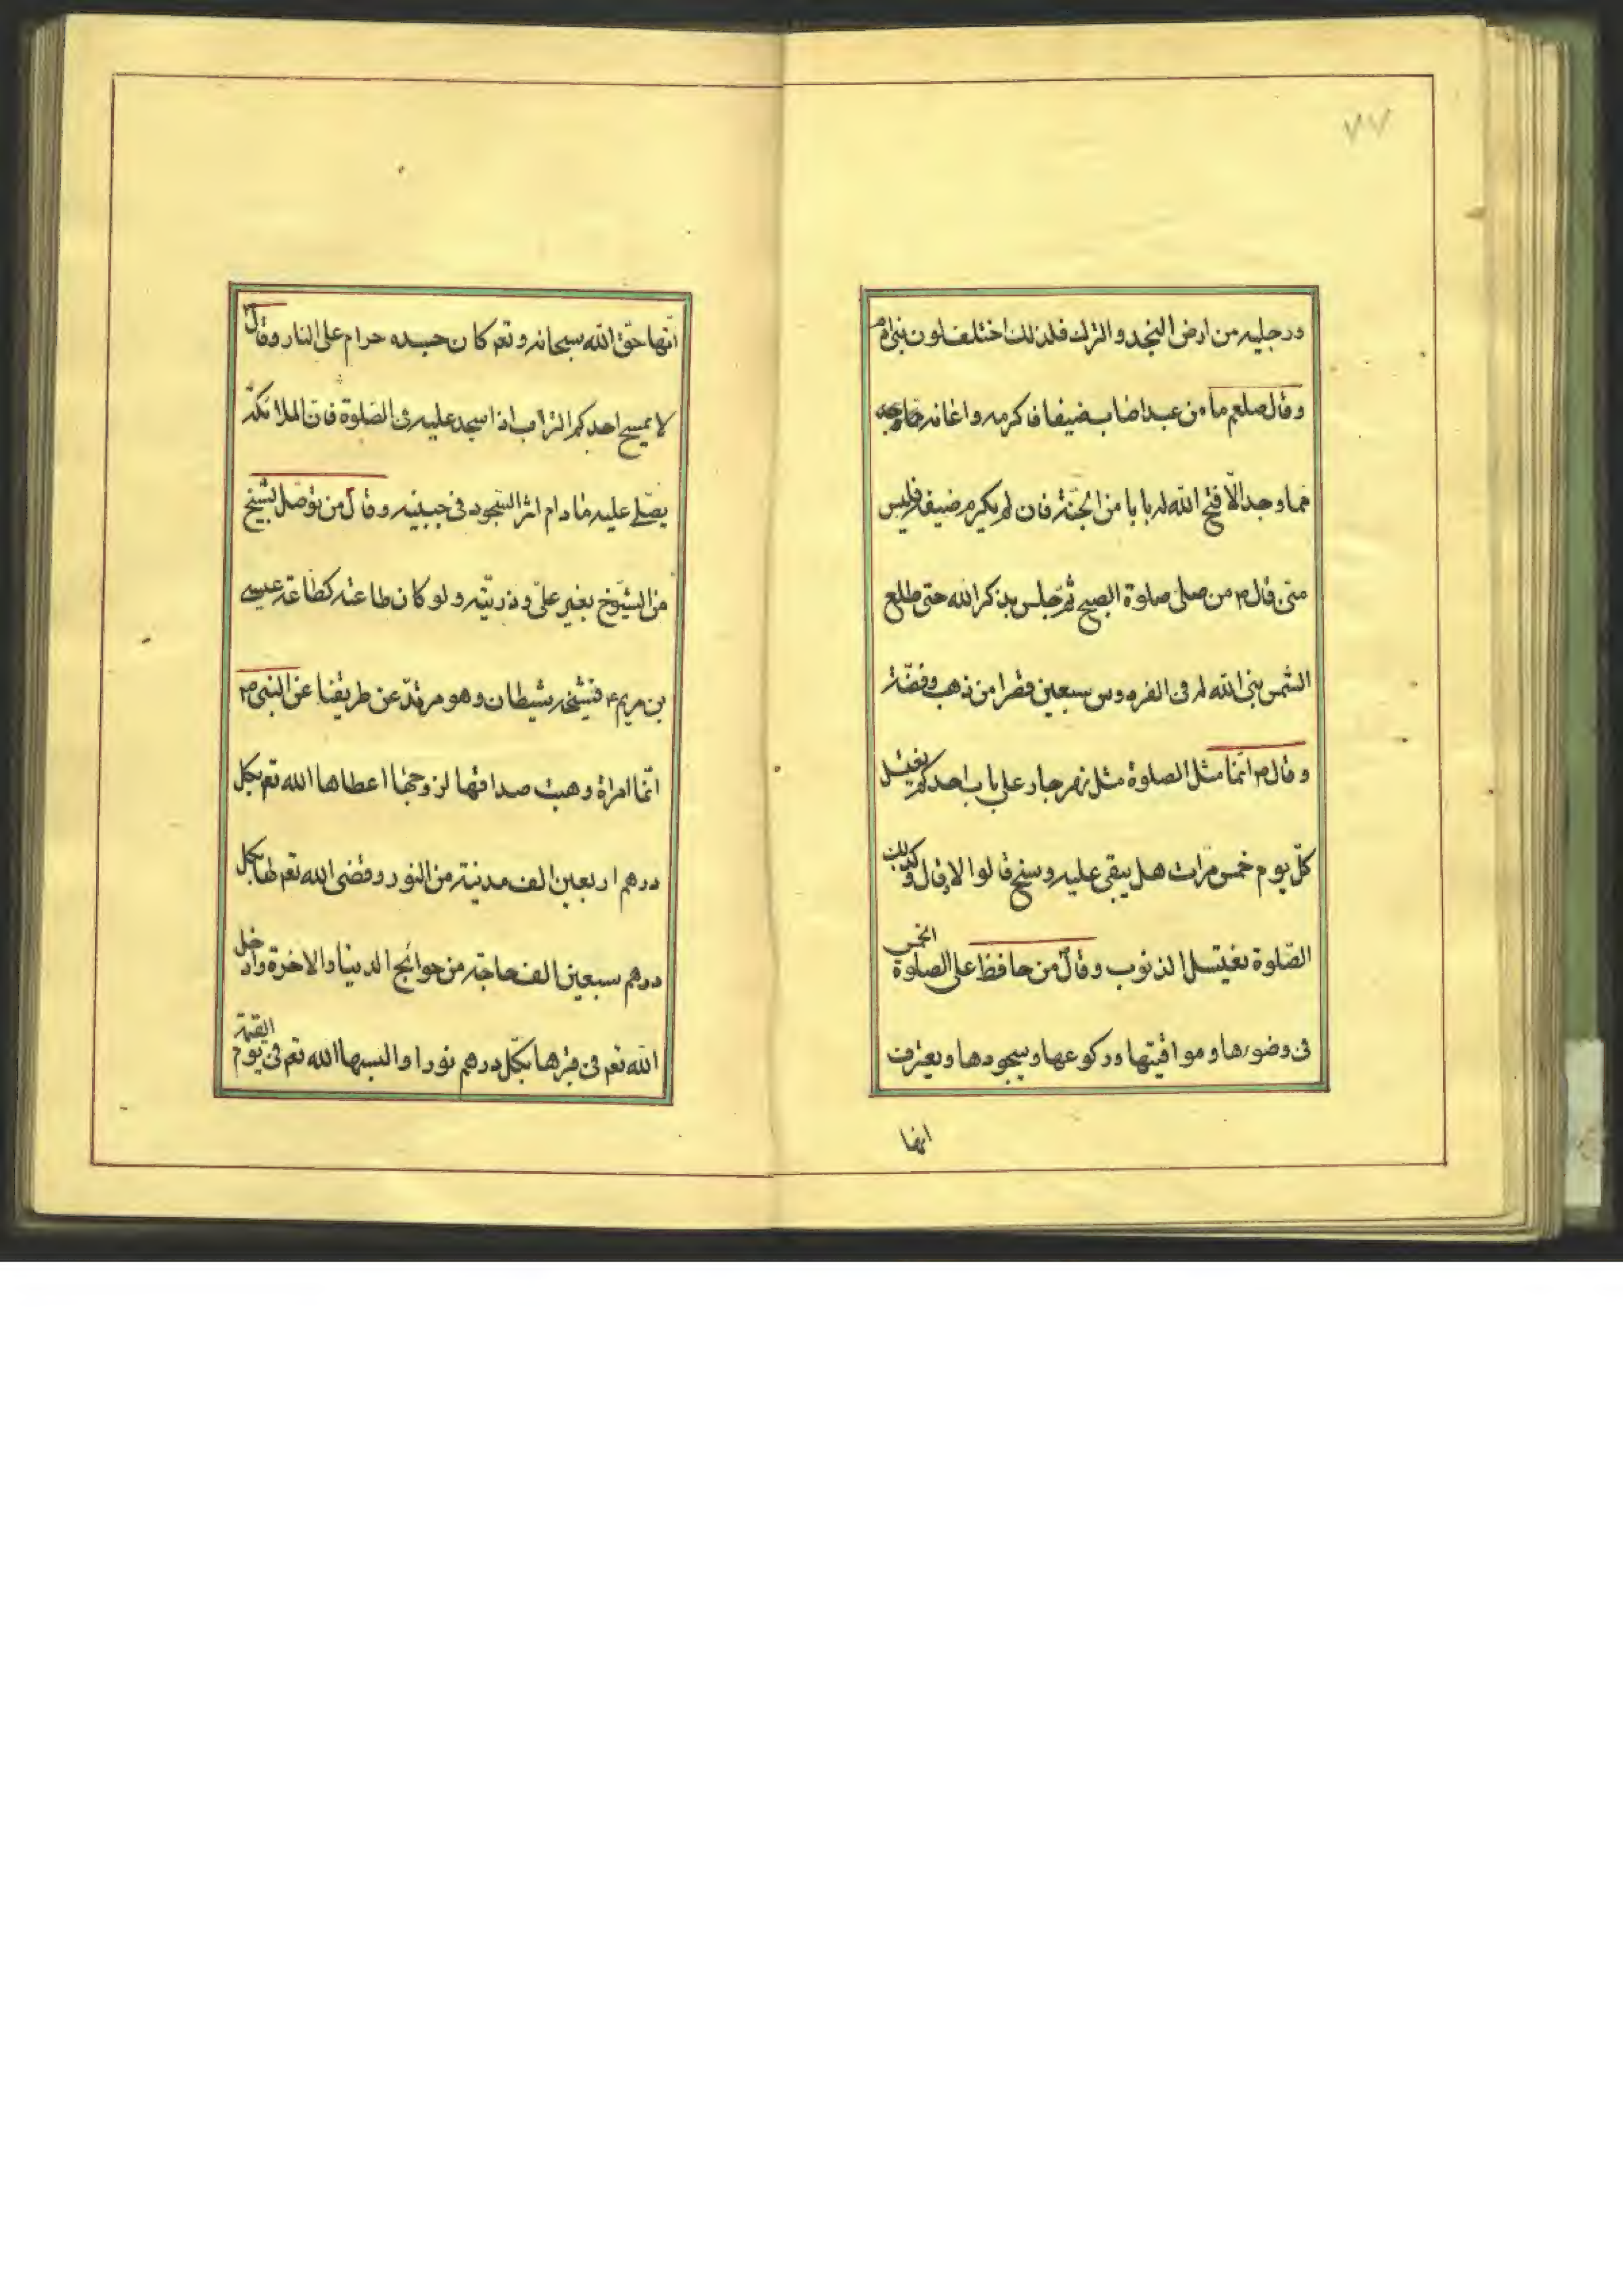 ٧٧
ورجليه من ارض النجد والترك فلذلك اختلف لون بنى ادم
وقال صلعم ما من عبد اضاب ضيفا فاكرمه واعانه
فما وجد الّا فتح الله له بابا من الجنّة فان لم يكرم ضيفه فليس
منّى قال ص من صلى صلوة الصبح ثمّ جلس يذكر الله حتى طلع
الشمس بنى الله له فى الفردوس سبعين قصرا من ذهب وفضّة
وقال ص انّما مثل الصلوة مثل نهر جار على باب احدكم يغتسل
كلّ يوم خمس مرّات هل يبقى عليه وسخ قالوا لا قال وكذلك
الصّلوة تغتسل الذنوب وقال ص من حافظ على الصلوة الخمس
فى وضوءها ومواقيتها وركوعها وسجودها ويعترف
انها
انّها حقّ الله سبحانه وتعم كان جسده حرام على النار وقال ص
لا يمسح احدكم التراب اذا سجد عليه فى الصّلوة فانّ الملائكة
يصّلى عليه مادام اثر السّجود فى جبينه وقال ص من توصّل بشيخ
من الشيّوخ بغير علىّ وذريّته ولو كان طاعته كطاعة عيسى
بن مريم ع فشيخه شيطان وهو مرتدّ عن طريقنا عن النبى ص
انّما امراة وهبت صداقها لزوجها اعطاها الله تعم بكل
درهم اربعين الف مدينة من النور وقضى الله تعم لها بكل
درهم سبعين الف حاجة من حوائج الدينا والاخرة وادخل
الله تعم فى قبرها بكّل درهم نورا والبسها الله تعم فى يوم القيمة